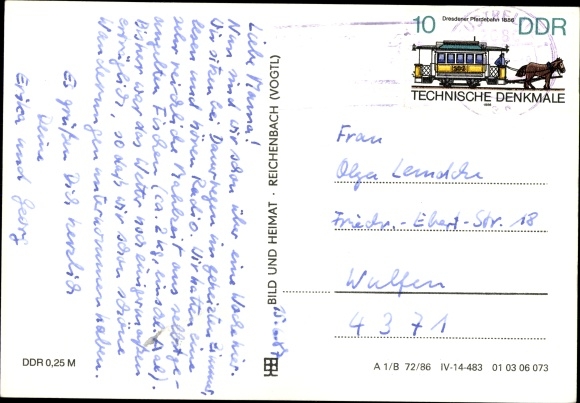 Liebe Mama!
Nun sind wir schon über eine Woche hier.
Wir sitzen bei Dauerregen im geheizten Zimmer,
lesen und hören Radio. Wir hatten eine
sehr reichliche Mahlzeit aus selbstge-
angelten Fischen (ca. 2 kg, ein Aal).
Bisher war das Wetter noch einigermaßen
erträglich, so daß wir schon schöne
Wanderungen unternommen haben.
Es grüßen Dich herzlich
Deine
Erika und Georg
DDR 0,25 M
BILD UND HEIMAT · REICHENBACH (VOGTL)
10 Dresdener Pferdebahn 1886 DDR
TECHNISCHE DENKMALE
1986
Frau
Olga Lemcke
Friedr.-Ebert-Str. 18
Wulfen
4371
A 1/B 72/86 IV-14-483 01 03 06 073